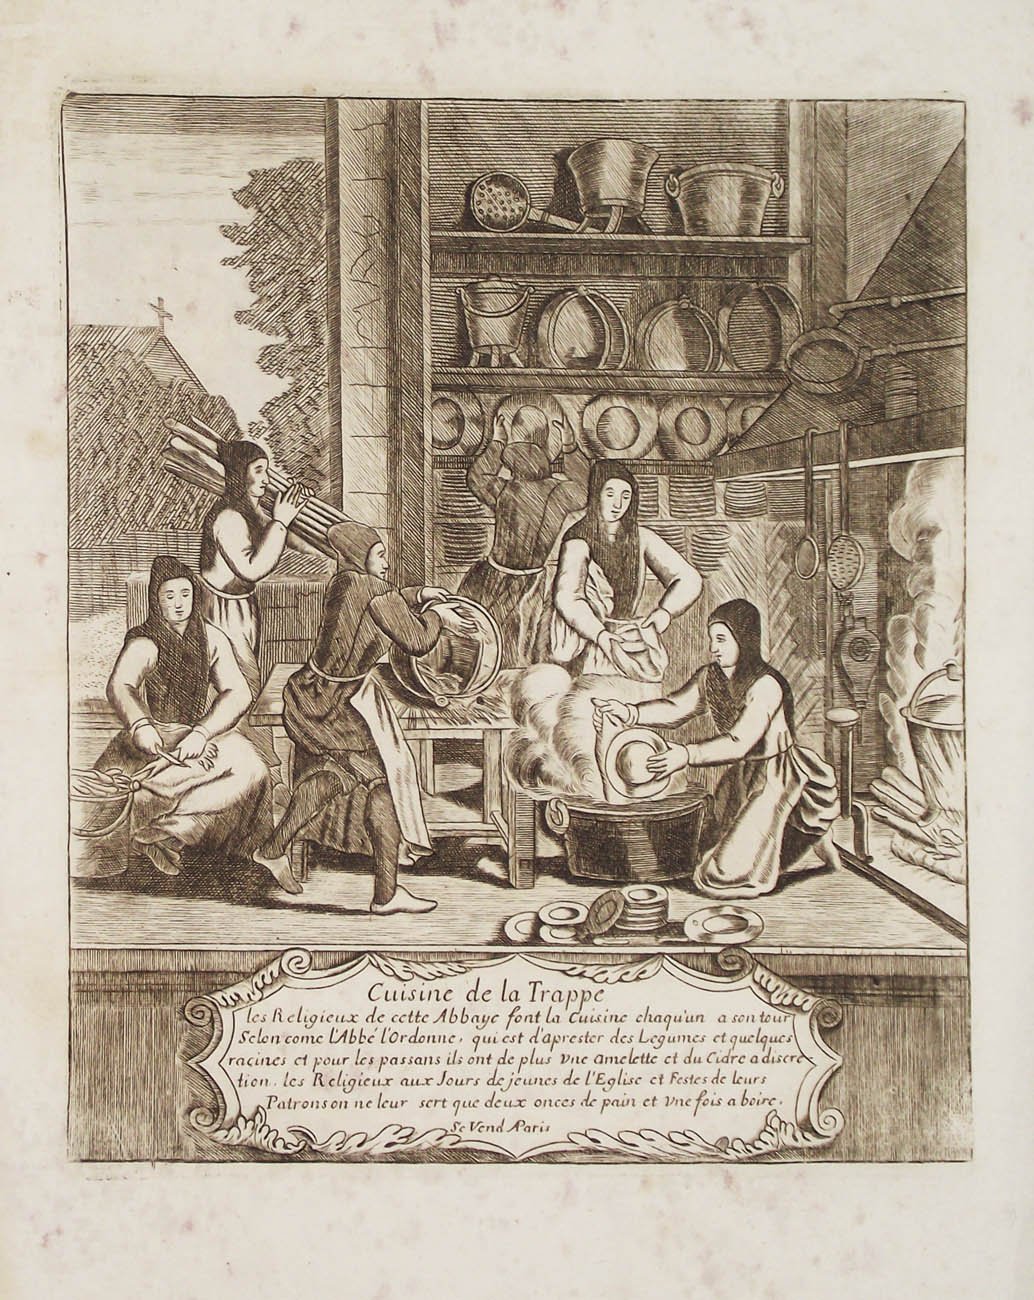 Cuisine de la Trappe
les Religieux de cette Abbaye font la Cuisine chaqu'un a son tour
Selon come l'Abbé l'Ordonne, qui est d'aprester des Legumes et quelques
racines et pour les passans ils ont de plus vne amelette et du Cidre a discre-
tion. les Religieux aux Jours de jeunes de l'Eglise et Festes de leurs
Patrons on ne leur sert que deux onces de pain et vne fois a boire.
Se Vend A Paris